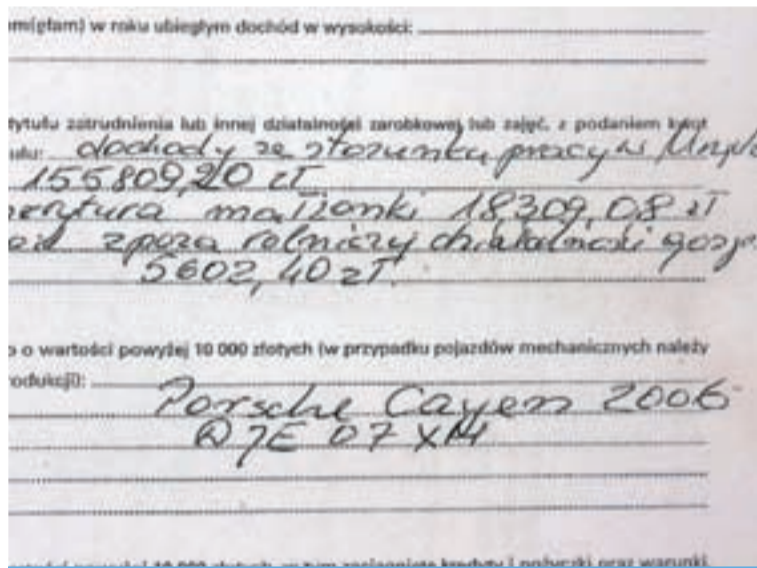 m(głam) w roku ubiegłym dochód w wysokości:
tytułu zatrudnienia lub innej działalności zarobkowej lub zajęć, z podaniem kwot
tułu: dochody ze stosunku pracy w
155809,20 zł
erytura małżonki 18309,08 zł
zpoza rolniczej działalności gosp
5602,40 zł.
o o wartości powyżej 10 000 złotych (w przypadku pojazdów mechanicznych należy
rodukcji):
Porsche Cayen 2006
07 XM
powyżej 10 000 złotych, w tym zaciągnięte kredyty i pożyczki oraz warunki